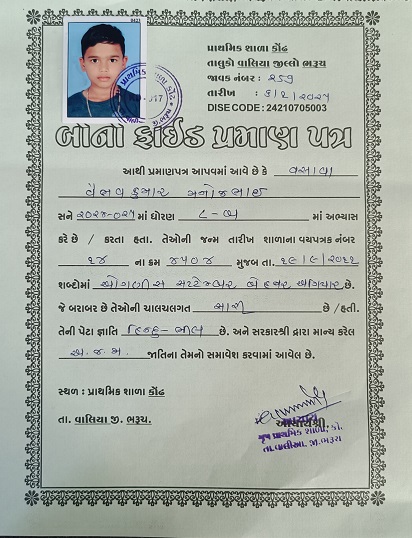 પ્રાથમિક શાળા કોંઢ
તાલુકો વાલિયા જીલ્લો ભરૂચ
જાવક નંબર : ૨૬૭
તારીખ :
DISE CODE : 24210705003
બોનો ફાઈડ પ્રમાણ પત્ર
આથી પ્રમાણપત્ર આપવામાં આવે છે કે વસાવા
વૈભવકુમાર મનોજભાઇ
સને ૨૦૨૪-૦૨૫ માં ધોરણ ૮-બ માં અભ્યાસ
કરે છે / કરતા હતા. તેઓની જન્મ તારીખ શાળાના વયપત્રક નંબર
૧૪ ના ક્રમ ૪૫૦૪ મુજબ તા. ૧૯/૯/૨૦૧૧
શબ્દોમાં ઓગણીસ સપ્ટેમ્બર બે હજાર અગિયાર છે.
જે બરાબર છે તેઓની ચાલચલગત સારી છે /હતી.
તેની પેટા જ્ઞાતિ હિન્દુ-ભીલ છે. અને સરકારશ્રી દ્વારા માન્ય કરેલ
અ.જ.જા. જાતિના તેમનો સમાવેશ કરવામાં આવેલ છે.
સ્થળ : પ્રાથમિક શાળા કોંઢ
આચાર્યશ્રી
તા. વાલિયા જી. ભરૂચ.
પ્રાથમિક શાળા, કોંઢ
તા.વાલીઆ. જી.ભરૂચ